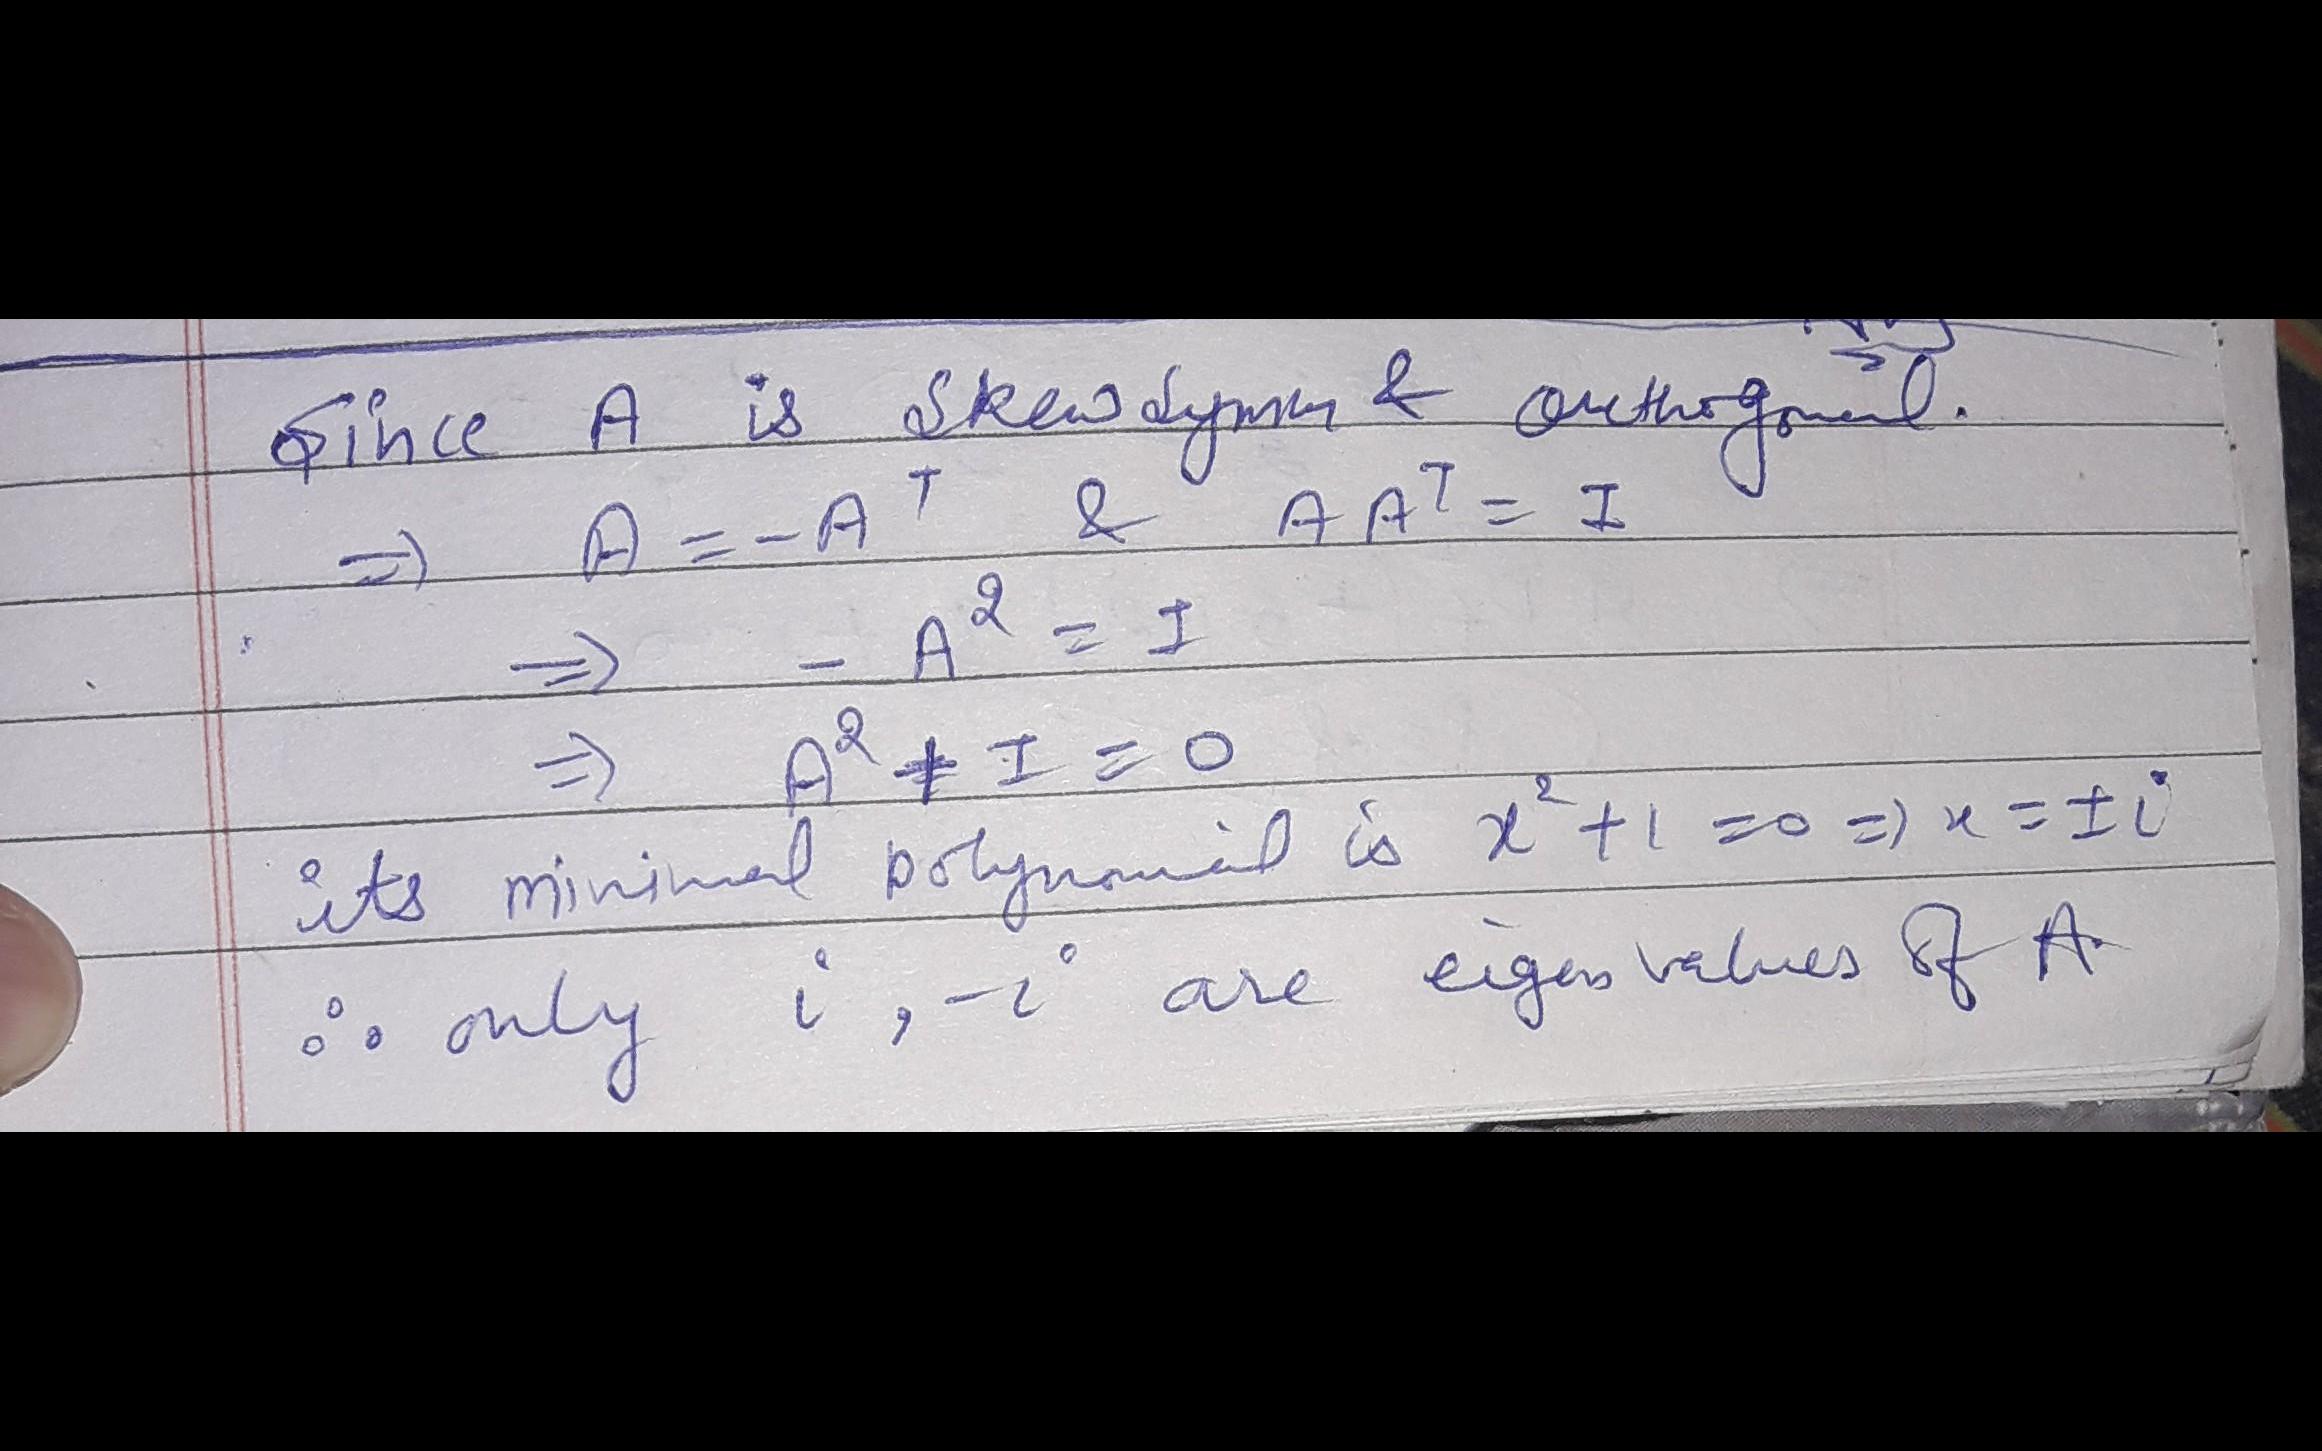 Since A is skew symm & orthogonal.
⇒ A = -Aᵀ & AAᵀ = I
⇒ - A² = I
⇒ A² + I = 0
its minimal polynomial is x² + 1 = 0 ⇒ x = ± i
∴ only i, -i are eigen values of A.